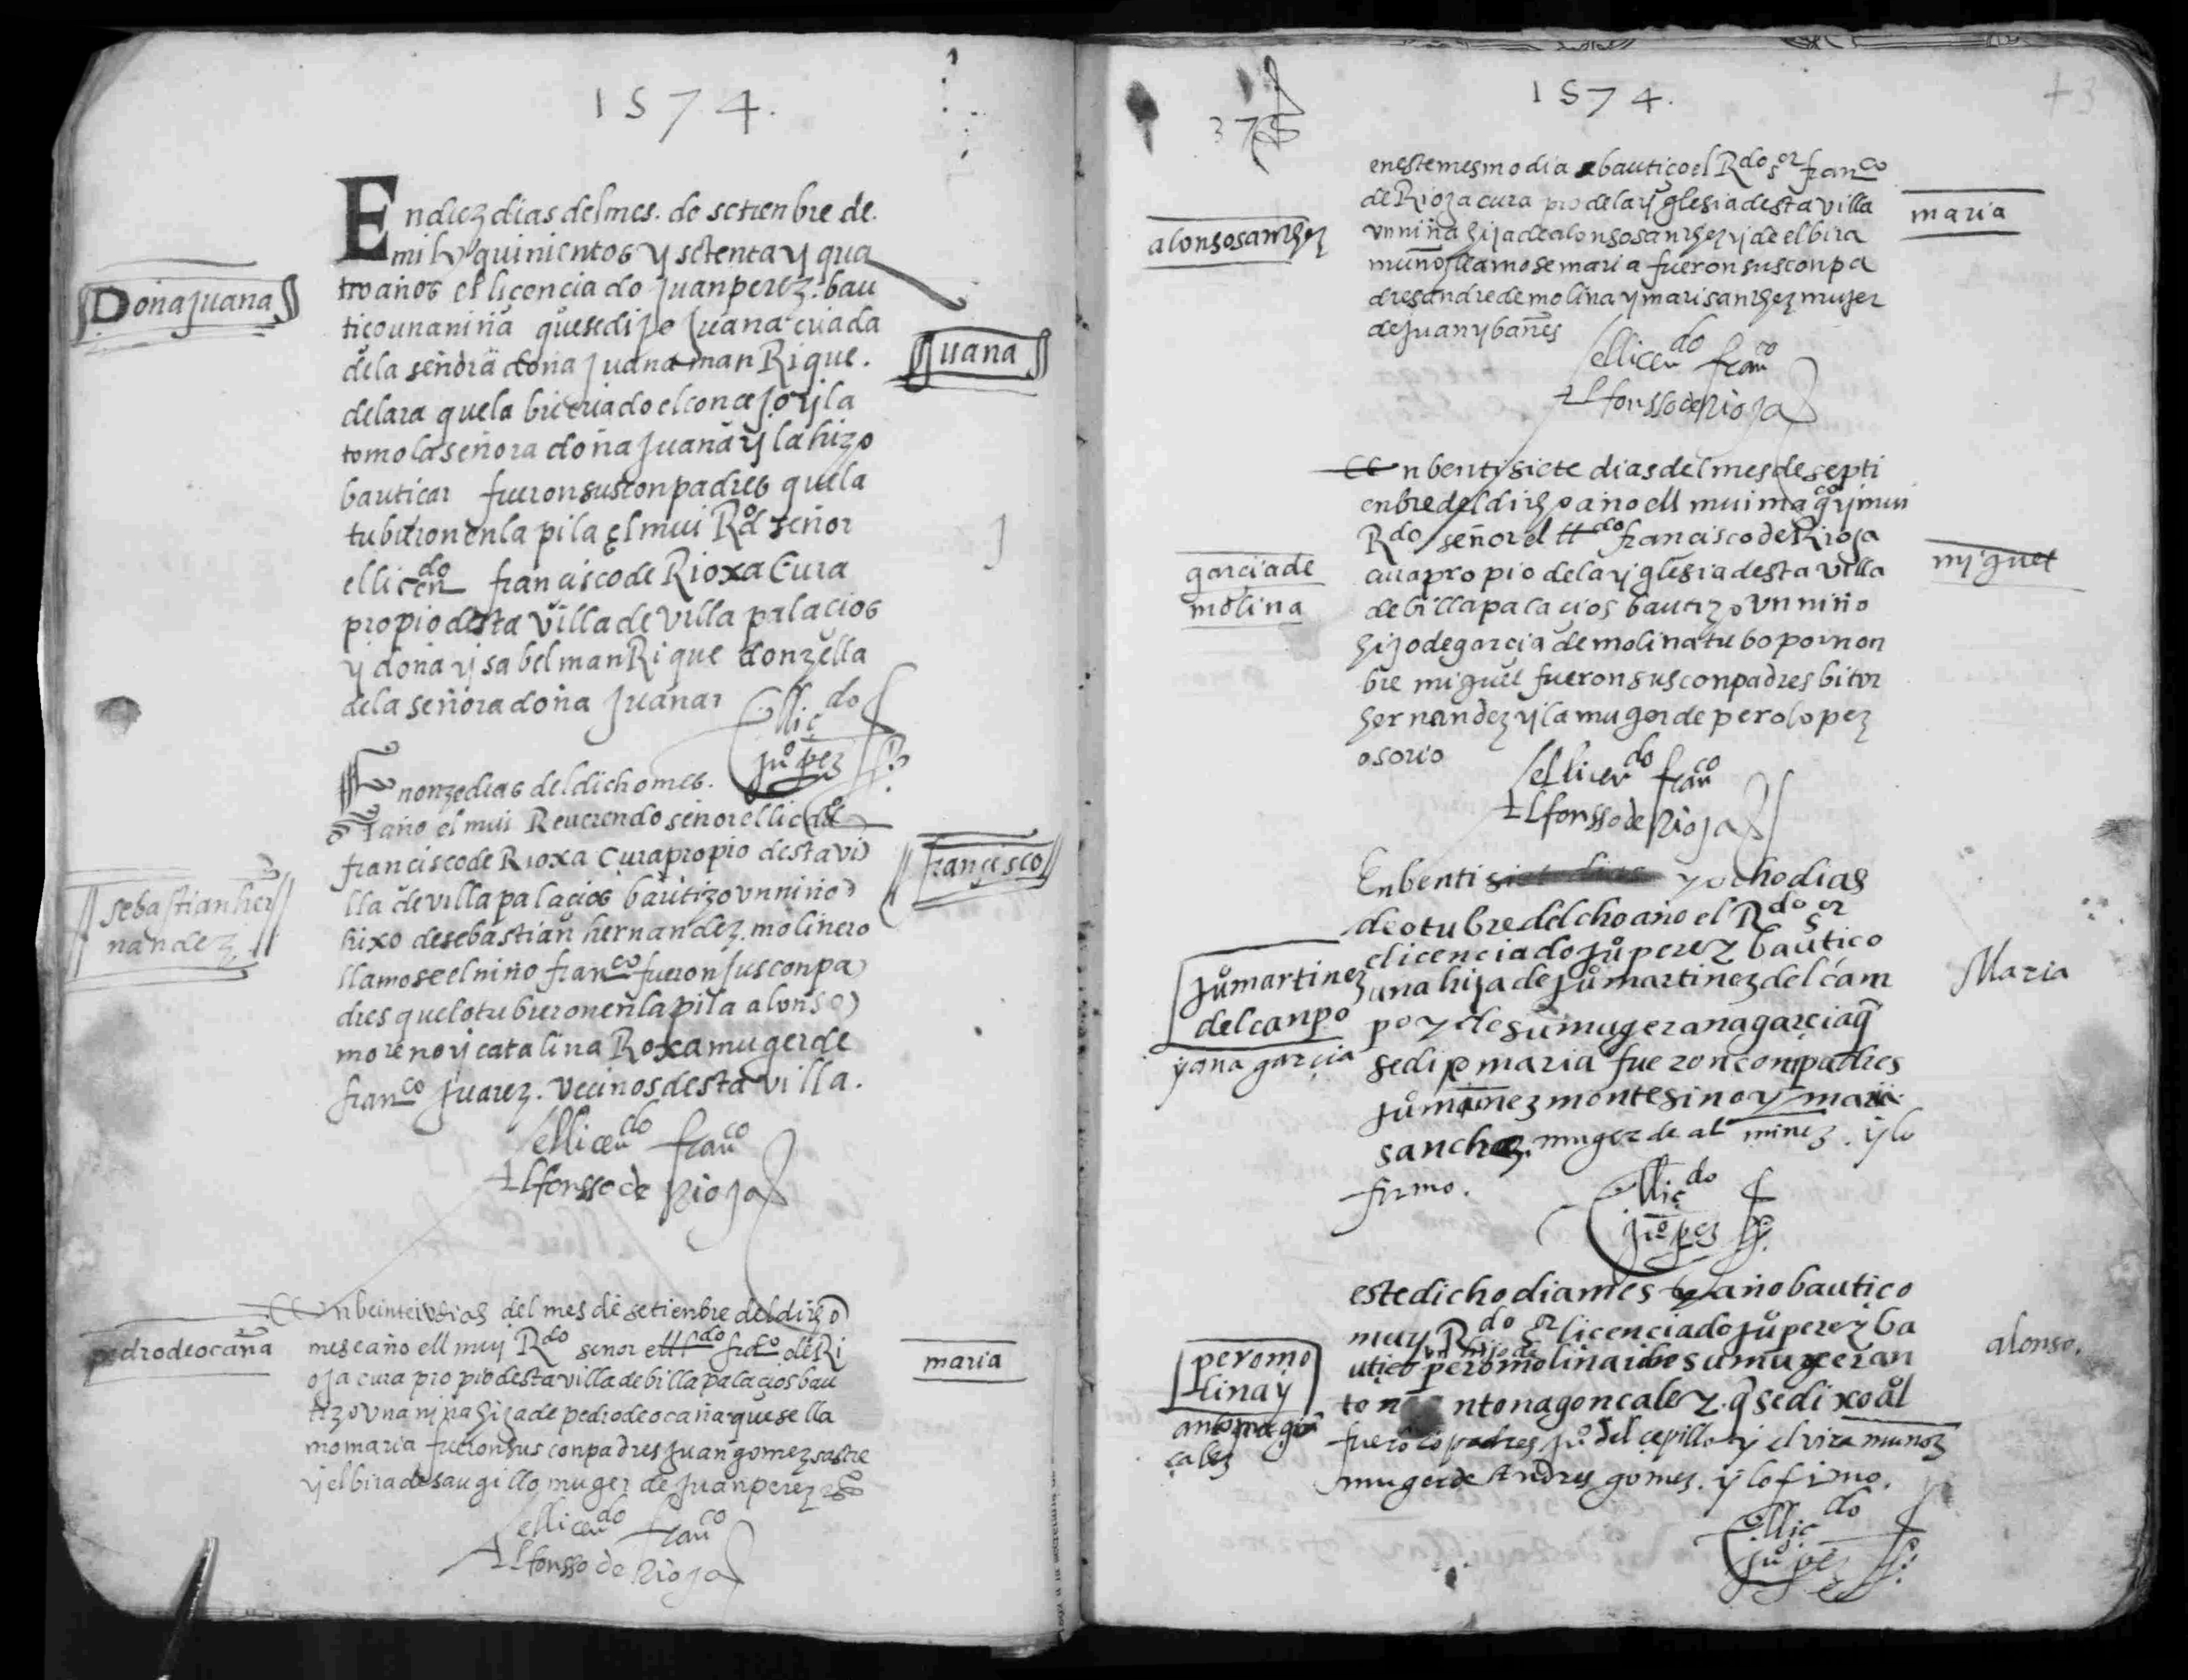 1574.
En diez dias del mes. de setienbre de.
mil y quinientos y setenta y qua
tro años el licenciado Juan perez. bau
tiço una niña que se dijo Juana criada
de la señora doña Juana manRique.
de lara que la bie criado el concejo y la
tomo la señora doña Juana y la hizo
bauticar fueron sus conpadres que la
tubieron en la pila el mui Rdo señor
el licendo francisco de Rioxa Cura
propio desta Villa de Villa palacios
y doña ysabel manRique donzella
de la señora doña Juana
Doña Juana
Juana
El licdo
juo pez
En onze dias del dicho mes.
año el mui Reuerendo señor el licdo
francisco de Rioxa Cura propio desta vi
lla de villa palacios bautizo un niño
hixo de sebastian hernandez molinero
llamose el niño franco fueron sus conpa
dres que lo tubieron en la pila alonso
moreno y catalina Roxa muger de
franco Juarez. vecinos desta villa.
sebastian her
nandez
francisco
el licendo franco
Alfonsso de Rioja
En beinte dias del mes de setienbre del dicho
mes e año ell muy Rdo señor el lldo franco de Ri
oja cura propio desta villa de billa palaçios bau
tizo una niña hija de pedro de ocaña que se lla
mo maria fueron sus conpadres juan gomez sastre
y elbira de saugillo muger de juan perez
pedro de ocaña
maria
el licendo franco
Alfonsso de Rioja
1574.
en este mesmo dia bautiço el Rdo sor franco
de Rioja cura pro de la yglesia desta villa
un niña hija de alonso sanchez y de elbira
muñoz llamose maria fueron sus conpa
dres andre de molina y mari sanchez mujer
de juan ybañes
alonso sanchez
maria
el licendo franco
Alfonsso de Rioja
En bentisiete dias del mes de septi
enbre del dicho año ell mui magco y mui
Rdo señor el lldo francisco de Rioja
cura propio de la yglesia desta villa
de billapalaçios bautizo un niño
hijo de garcia de molina tubo por non
bre miguel fueron sus conpadres bitor
hernandez y la muger de pero lopez
osorio
garcia de
molina
miguel
el licendo franco
Alfonsso de Rioja
En benti y ocho dias
de otubre del cho año el Rdo sor
el licenciado juo perez bautico
una hija de juo martinez del cam
po y de su muger ana garcia q
se dixo maria fueron compadres
juo minez montesino y maria
sanchez. muger de al minez. y lo
firmo.
juo martinez
del canpo
y ana garcia
Maria
El licdo
juo pez
este dicho dia mes y año bautico
muy Rdo sor licenciado juo perez ba
utico un hijo de pero molina i de su muger an
ton ntona goncalez. q se dixo al
fuero copadres juo del cepillo y elvira munoz
muger de Andres gomes. y lo firmo.
pero mo
lina y
antona gon
calez
alonso.
El licdo
juo pez